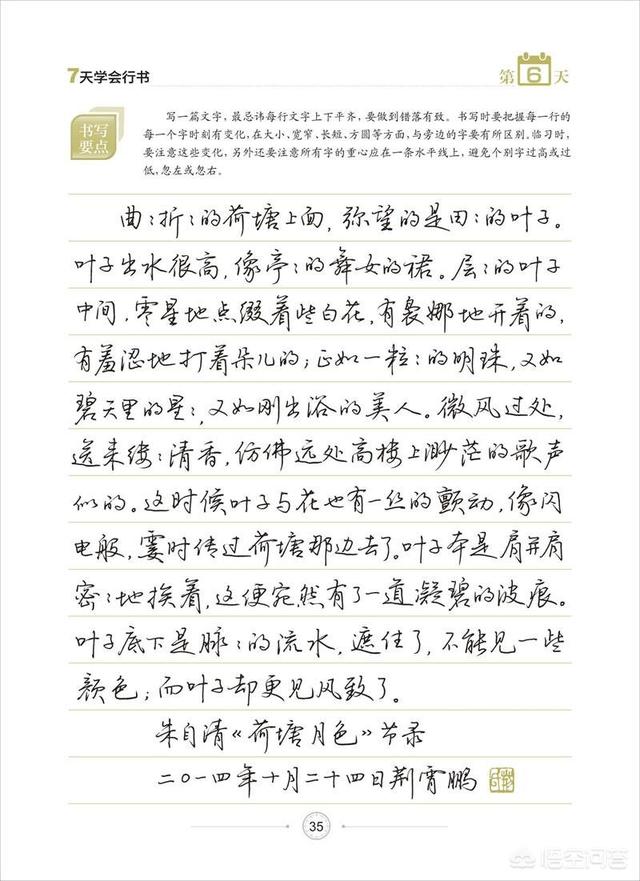 7天学会行书
第6天
书写要点
写一篇文字，最忌讳每行文字上下平齐，要做到错落有致。书写时要把握每一行的
每一个字时刻有变化，在大小、宽窄、长短、方圆等方面，与旁边的字要有所区别。临习时，
要注意这些变化，另外还要注意所有字的重心应在一条水平线上，避免个别字过高或过
低，忽左或忽右。
曲：折：的荷塘上面，弥望的是田：的叶子。
叶子出水很高，像亭：的舞女的裙。层：的叶子
中间，零星地点缀着些白花，有袅娜地开着的，
有羞涩地打着朵儿的；正如一粒：的明珠，又如
碧天里的星：，又如刚出浴的美人。微风过处，
送来缕：清香，仿佛远处高楼上渺茫的歌声
似的。这时候叶子与花也有一丝的颤动，像闪
电般，霎时传过荷塘那边去了。叶子本是肩并肩
密：地挨着，这便宛然有了一道凝碧的波痕。
叶子底下是脉：的流水，遮住了，不能见一些
颜色；而叶子却更见风致了。
朱自清《荷塘月色》节录
二〇一四年十月二十四日荆霄鹏
35
悟空问答